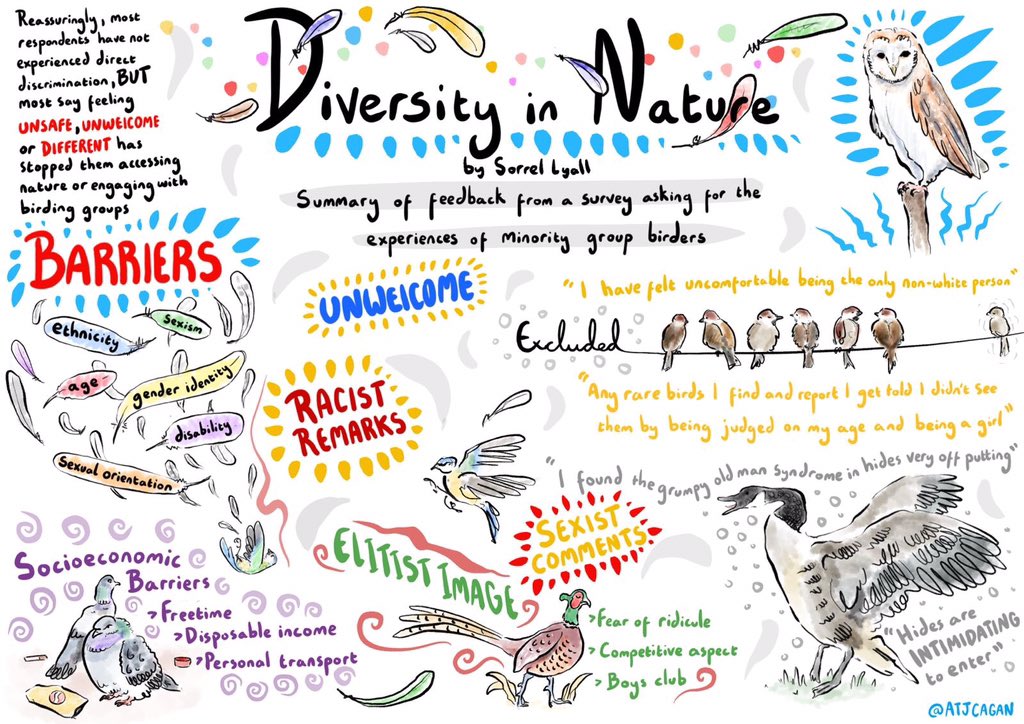 Reassuringly, most
respondents have not
experienced direct
discrimination, BUT
most say feeling
UNSAFE, UNWElCOME
or DIFFERENT has
stopped them accessing
nature or engaging with
birding groups
Diversity in Nature
by Sorrel Lyall
Summary of feedback from a survey asking for the
experiences of minority group birders
BARRIERS
ethnicity
sexism
age
gender identity
disability
Sexual orientation
UNWElCOME
RACIST
REMARKS
"I have felt uncomfortable being the only non-white person"
Excluded
"Any rare birds I find and report I get told I didn't see
them by being judged on my age and being a girl"
"I found the grumpy old man syndrome in hides very off putting"
SEXIST
COMMENTS
Socioeconomic
Barriers
> Freetime
> Disposable income
> Personal transport
ELITIST IMAGE
> Fear of ridicule
> Competitive aspect
> Boys club
"Hides are
INTIMIDATING
to enter"
@ATJCAGAN